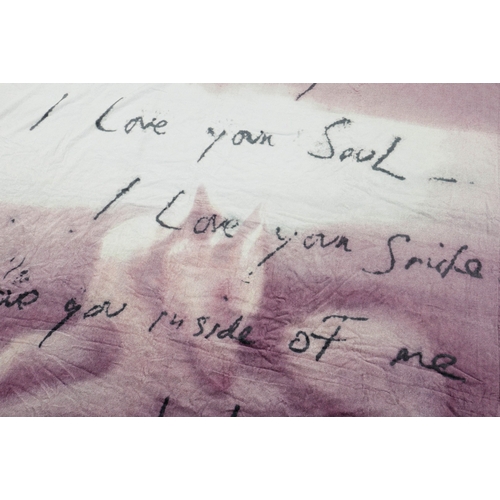 I Love your SouL -
I Love your Smile
you inside of me